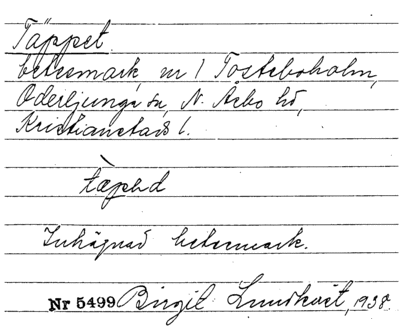 Täppet
betesmark, nr 1 Tosteboholm,
Oderljunga sn, N. Åsbo hd,
Kristianstads l.
Inhägnad betesmark.
Nr 5499 Birgit Lundkvist, 1938